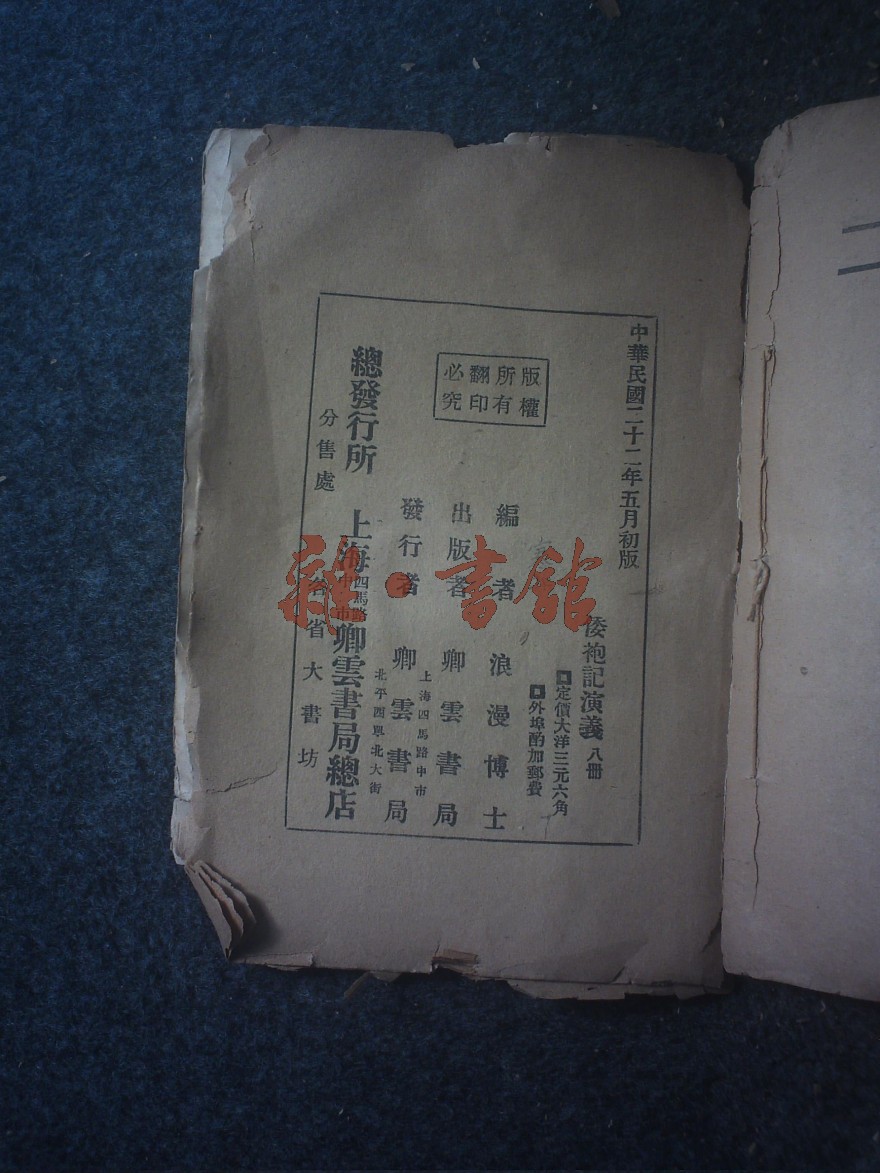 中華民國二十二年五月初版
倭袍記演義 八冊
定價大洋三元六角
外埠酌加郵費
版權所有翻印必究
編者 浪漫博士
出版者 卿雲書局
上海四馬路中市
發行者 卿雲書局
北平西單北大街
總發行所 上海四馬路中市卿雲書局總店
分售處 各省大書坊
雜·書館